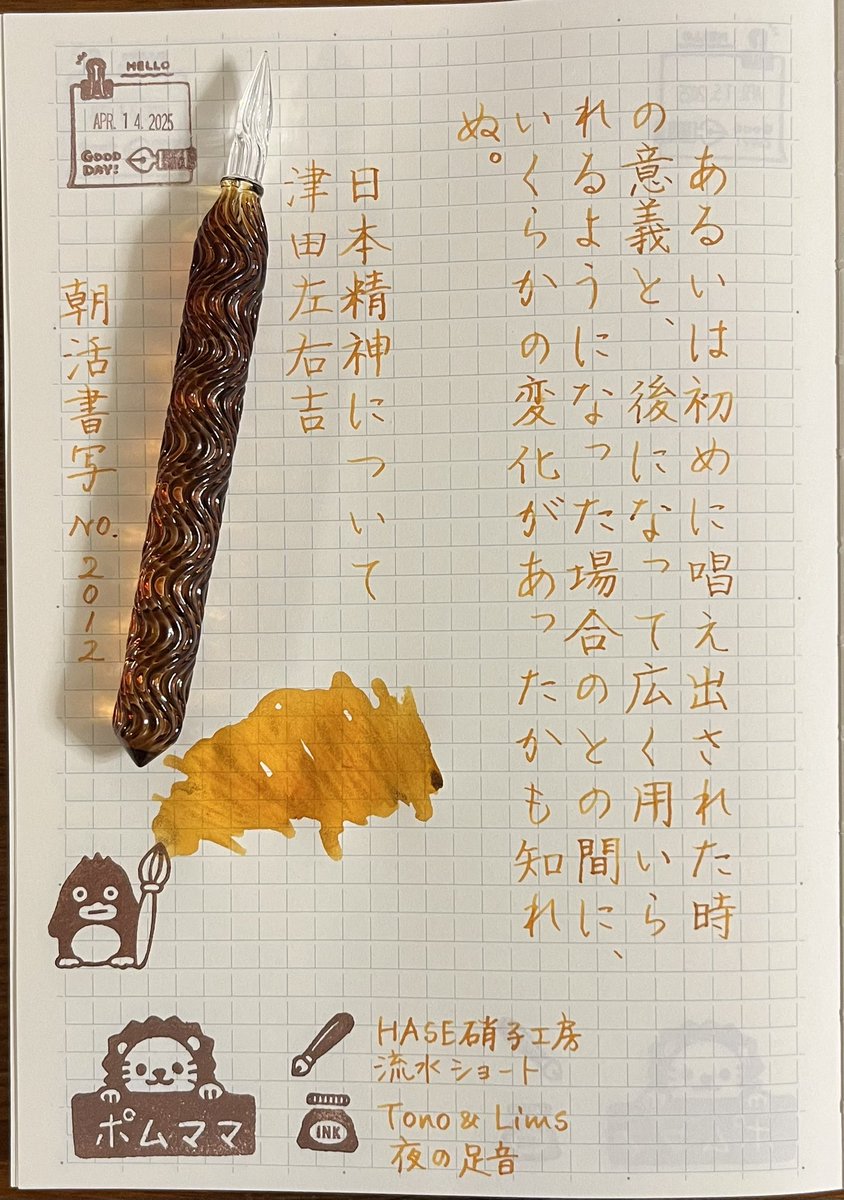 HELLO
APR. 14. 2025
GOOD
DAY!
あるいは初めに唱え出された時
の意義と、後になって広く用いら
れるようになった場合のとの間に、
いくらかの変化があったかも知れ
ぬ。
日本精神について
津田左右吉
朝活書写 NO.2012
ポムママ
HASE硝子工房
流水ショート
INK
Tono & Lims
夜の足音